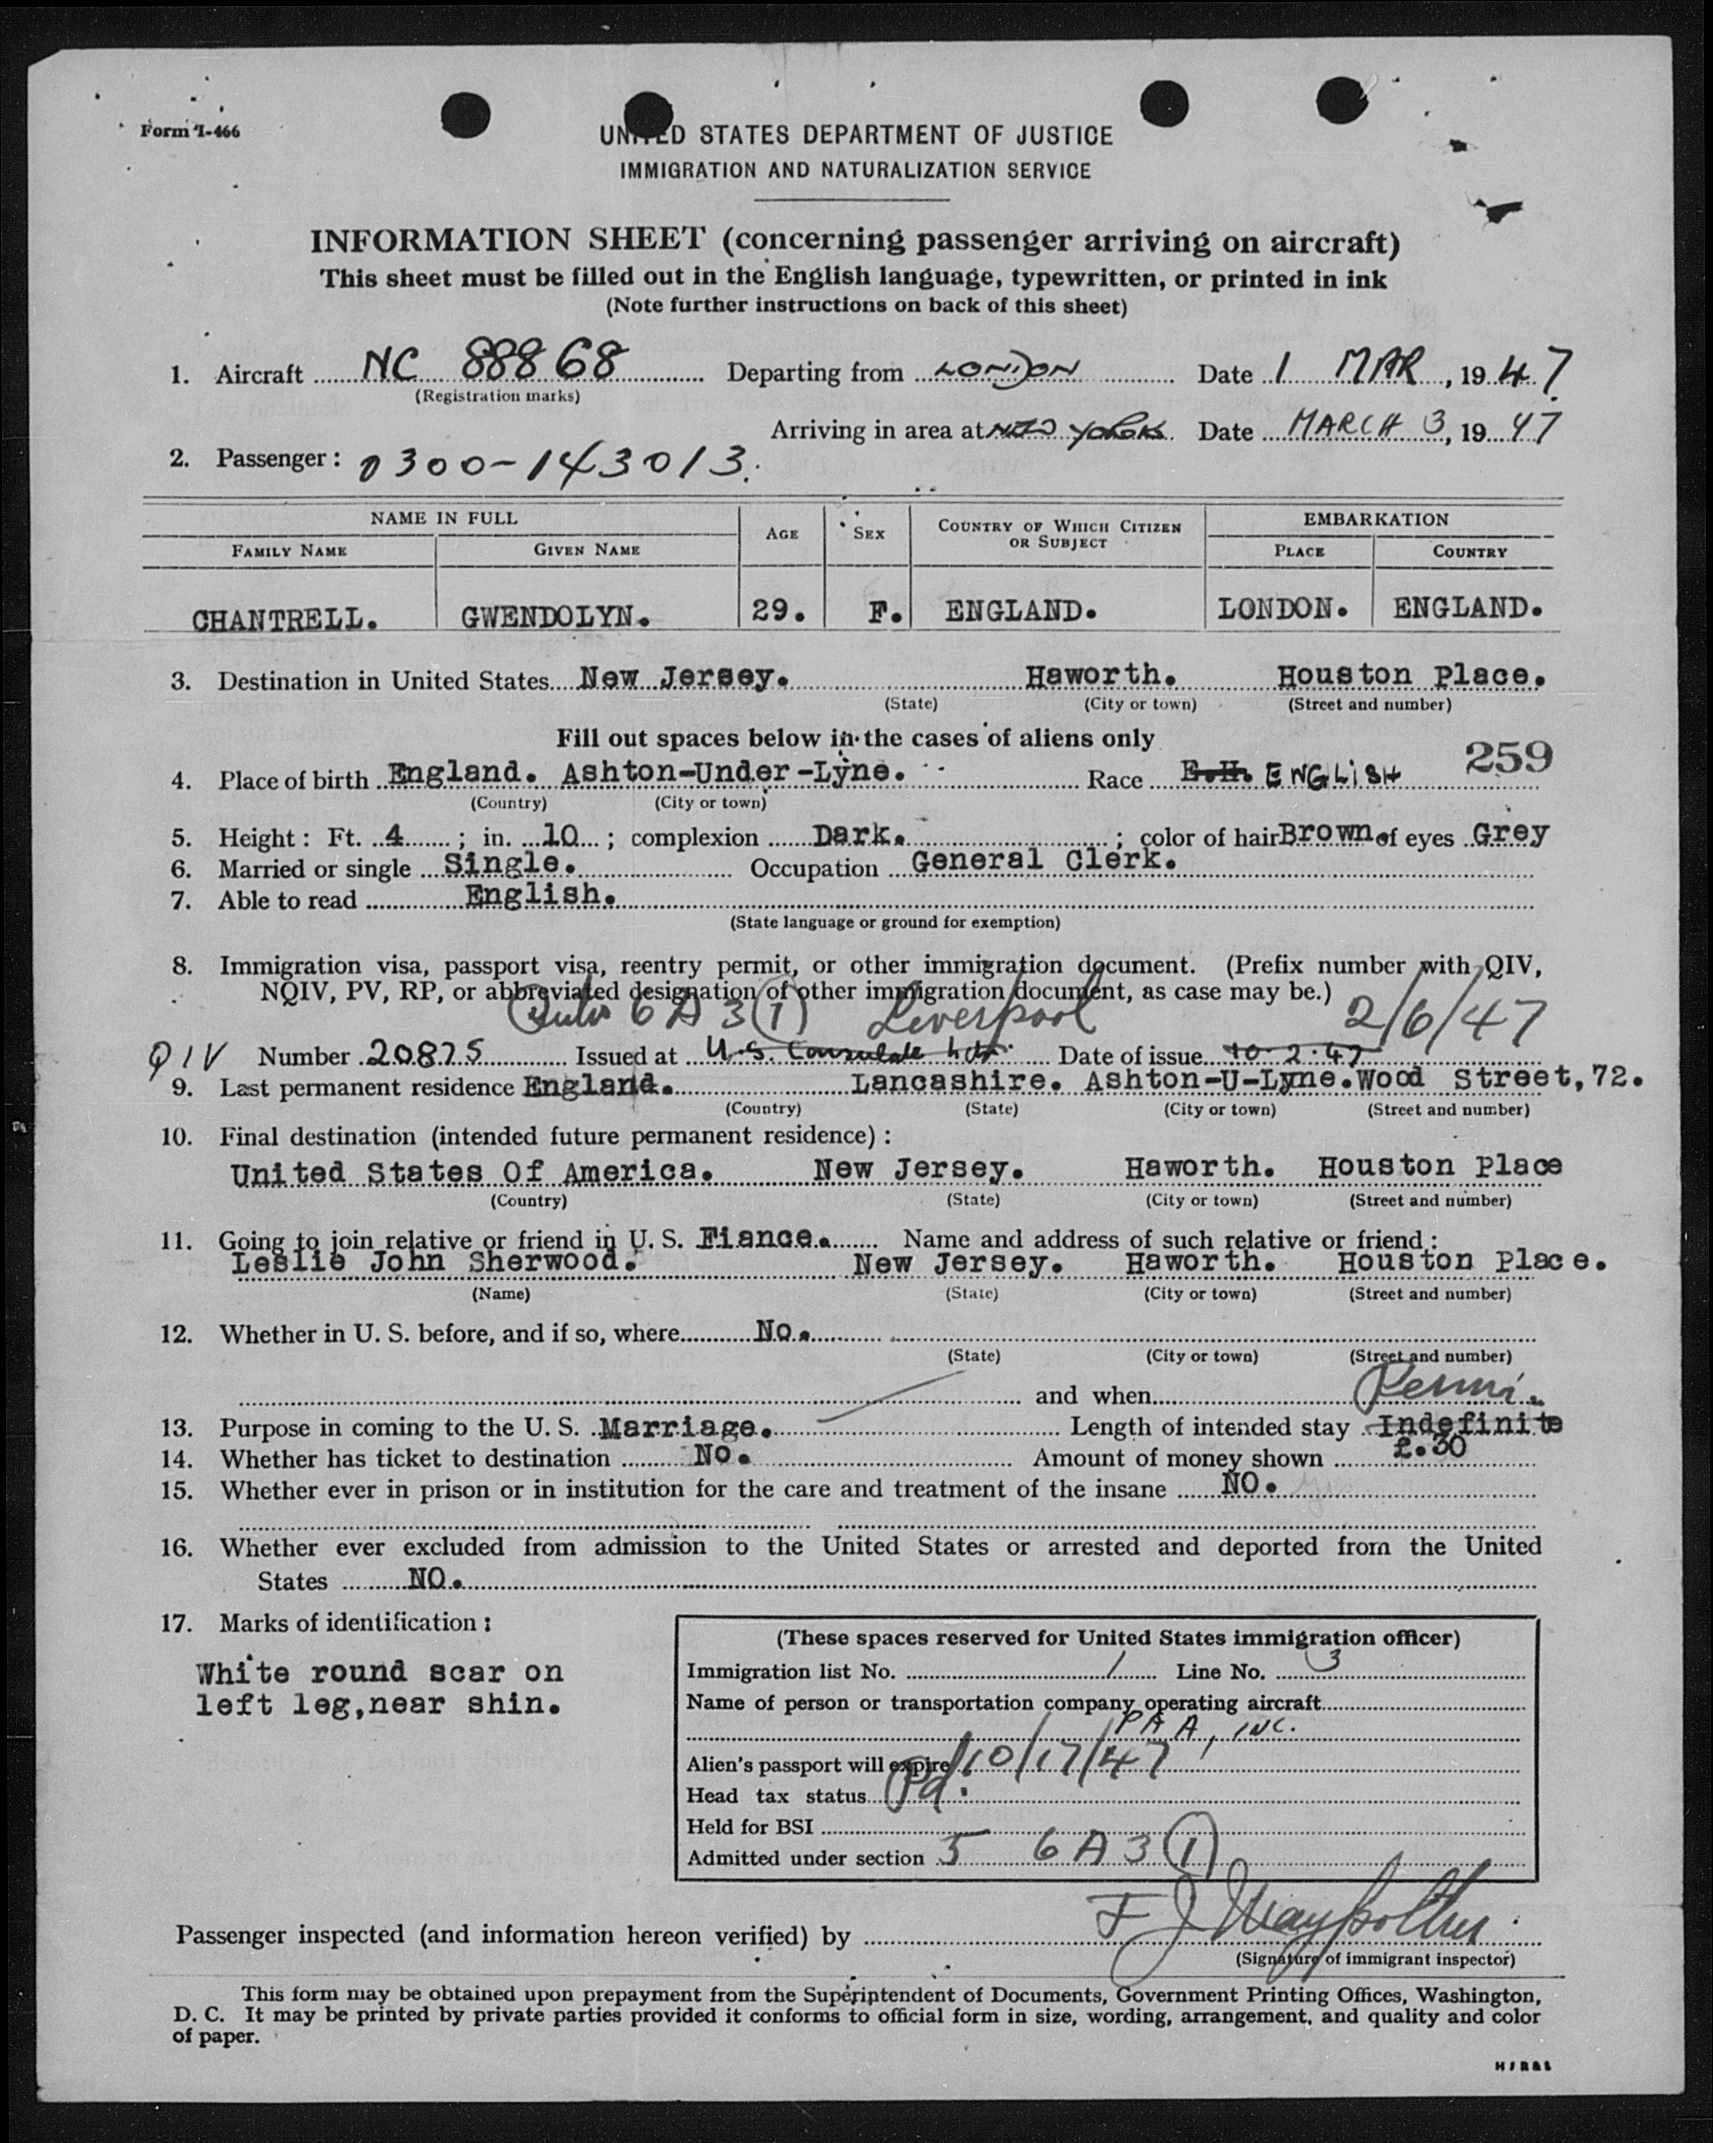 Form I-466
UNITED STATES DEPARTMENT OF JUSTICE
IMMIGRATION AND NATURALIZATION SERVICE
INFORMATION SHEET (concerning passenger arriving on aircraft)
This sheet must be filled out in the English language, typewritten, or printed in ink
(Note further instructions on back of this sheet)
1. Aircraft NC 88868 Departing from LONDON Date 1 MAR, 1947
(Registration marks)
Arriving in area at NEW YORK Date MARCH 3, 1947
2. Passenger: 0300-143013.
NAME IN FULL AGE SEX COUNTRY OF WHICH CITIZEN OR SUBJECT EMBARKATION
FAMILY NAME GIVEN NAME PLACE COUNTRY
CHANTRELL. GWENDOLYN. 29. F. ENGLAND. LONDON. ENGLAND.
3. Destination in United States New Jersey. Haworth. Houston Place.
(State) (City or town) (Street and number)
Fill out spaces below in the cases of aliens only
259
4. Place of birth England. Ashton-Under-Lyne. Race E.H. ENGLISH
(Country) (City or town)
5. Height: Ft. 4; in. 10; complexion Dark.; color of hair Brown of eyes Grey
6. Married or single Single. Occupation General Clerk.
7. Able to read English.
(State language or ground for exemption)
8. Immigration visa, passport visa, reentry permit, or other immigration document. (Prefix number with QIV,
NQIV, PV, RP, or abbreviated designation of other immigration document, as case may be.)
6 A 3 (1) Liverpool 2/6/47
QIV Number 20875 Issued at U.S. Consulate Date of issue 10.2.47
9. Last permanent residence England. Lancashire. Ashton-U-Lyne. Wood Street, 72.
(Country) (State) (City or town) (Street and number)
10. Final destination (intended future permanent residence):
United States Of America. New Jersey. Haworth. Houston Place
(Country) (State) (City or town) (Street and number)
11. Going to join relative or friend in U. S. Fiance. Name and address of such relative or friend:
Leslie John Sherwood. New Jersey. Haworth. Houston Place.
(Name) (State) (City or town) (Street and number)
12. Whether in U. S. before, and if so, where No.
(State) (City or town) (Street and number)
and when
Permi.
13. Purpose in coming to the U. S. Marriage. Length of intended stay Indefinite
14. Whether has ticket to destination No. Amount of money shown £.30
15. Whether ever in prison or in institution for the care and treatment of the insane NO.
16. Whether ever excluded from admission to the United States or arrested and deported from the United
States NO.
17. Marks of identification:
White round scar on
left leg,near shin.
(These spaces reserved for United States immigration officer)
Immigration list No. 1 Line No. 3
Name of person or transportation company operating aircraft
PAA, INC.
Alien's passport will expire 10/17/47
Head tax status Pd.
Held for BSI
Admitted under section 5 6 A 3 (1)
Passenger inspected (and information hereon verified) by F J
(Signature of immigrant inspector)
This form may be obtained upon prepayment from the Superintendent of Documents, Government Printing Offices, Washington,
D. C. It may be printed by private parties provided it conforms to official form in size, wording, arrangement, and quality and color
of paper.